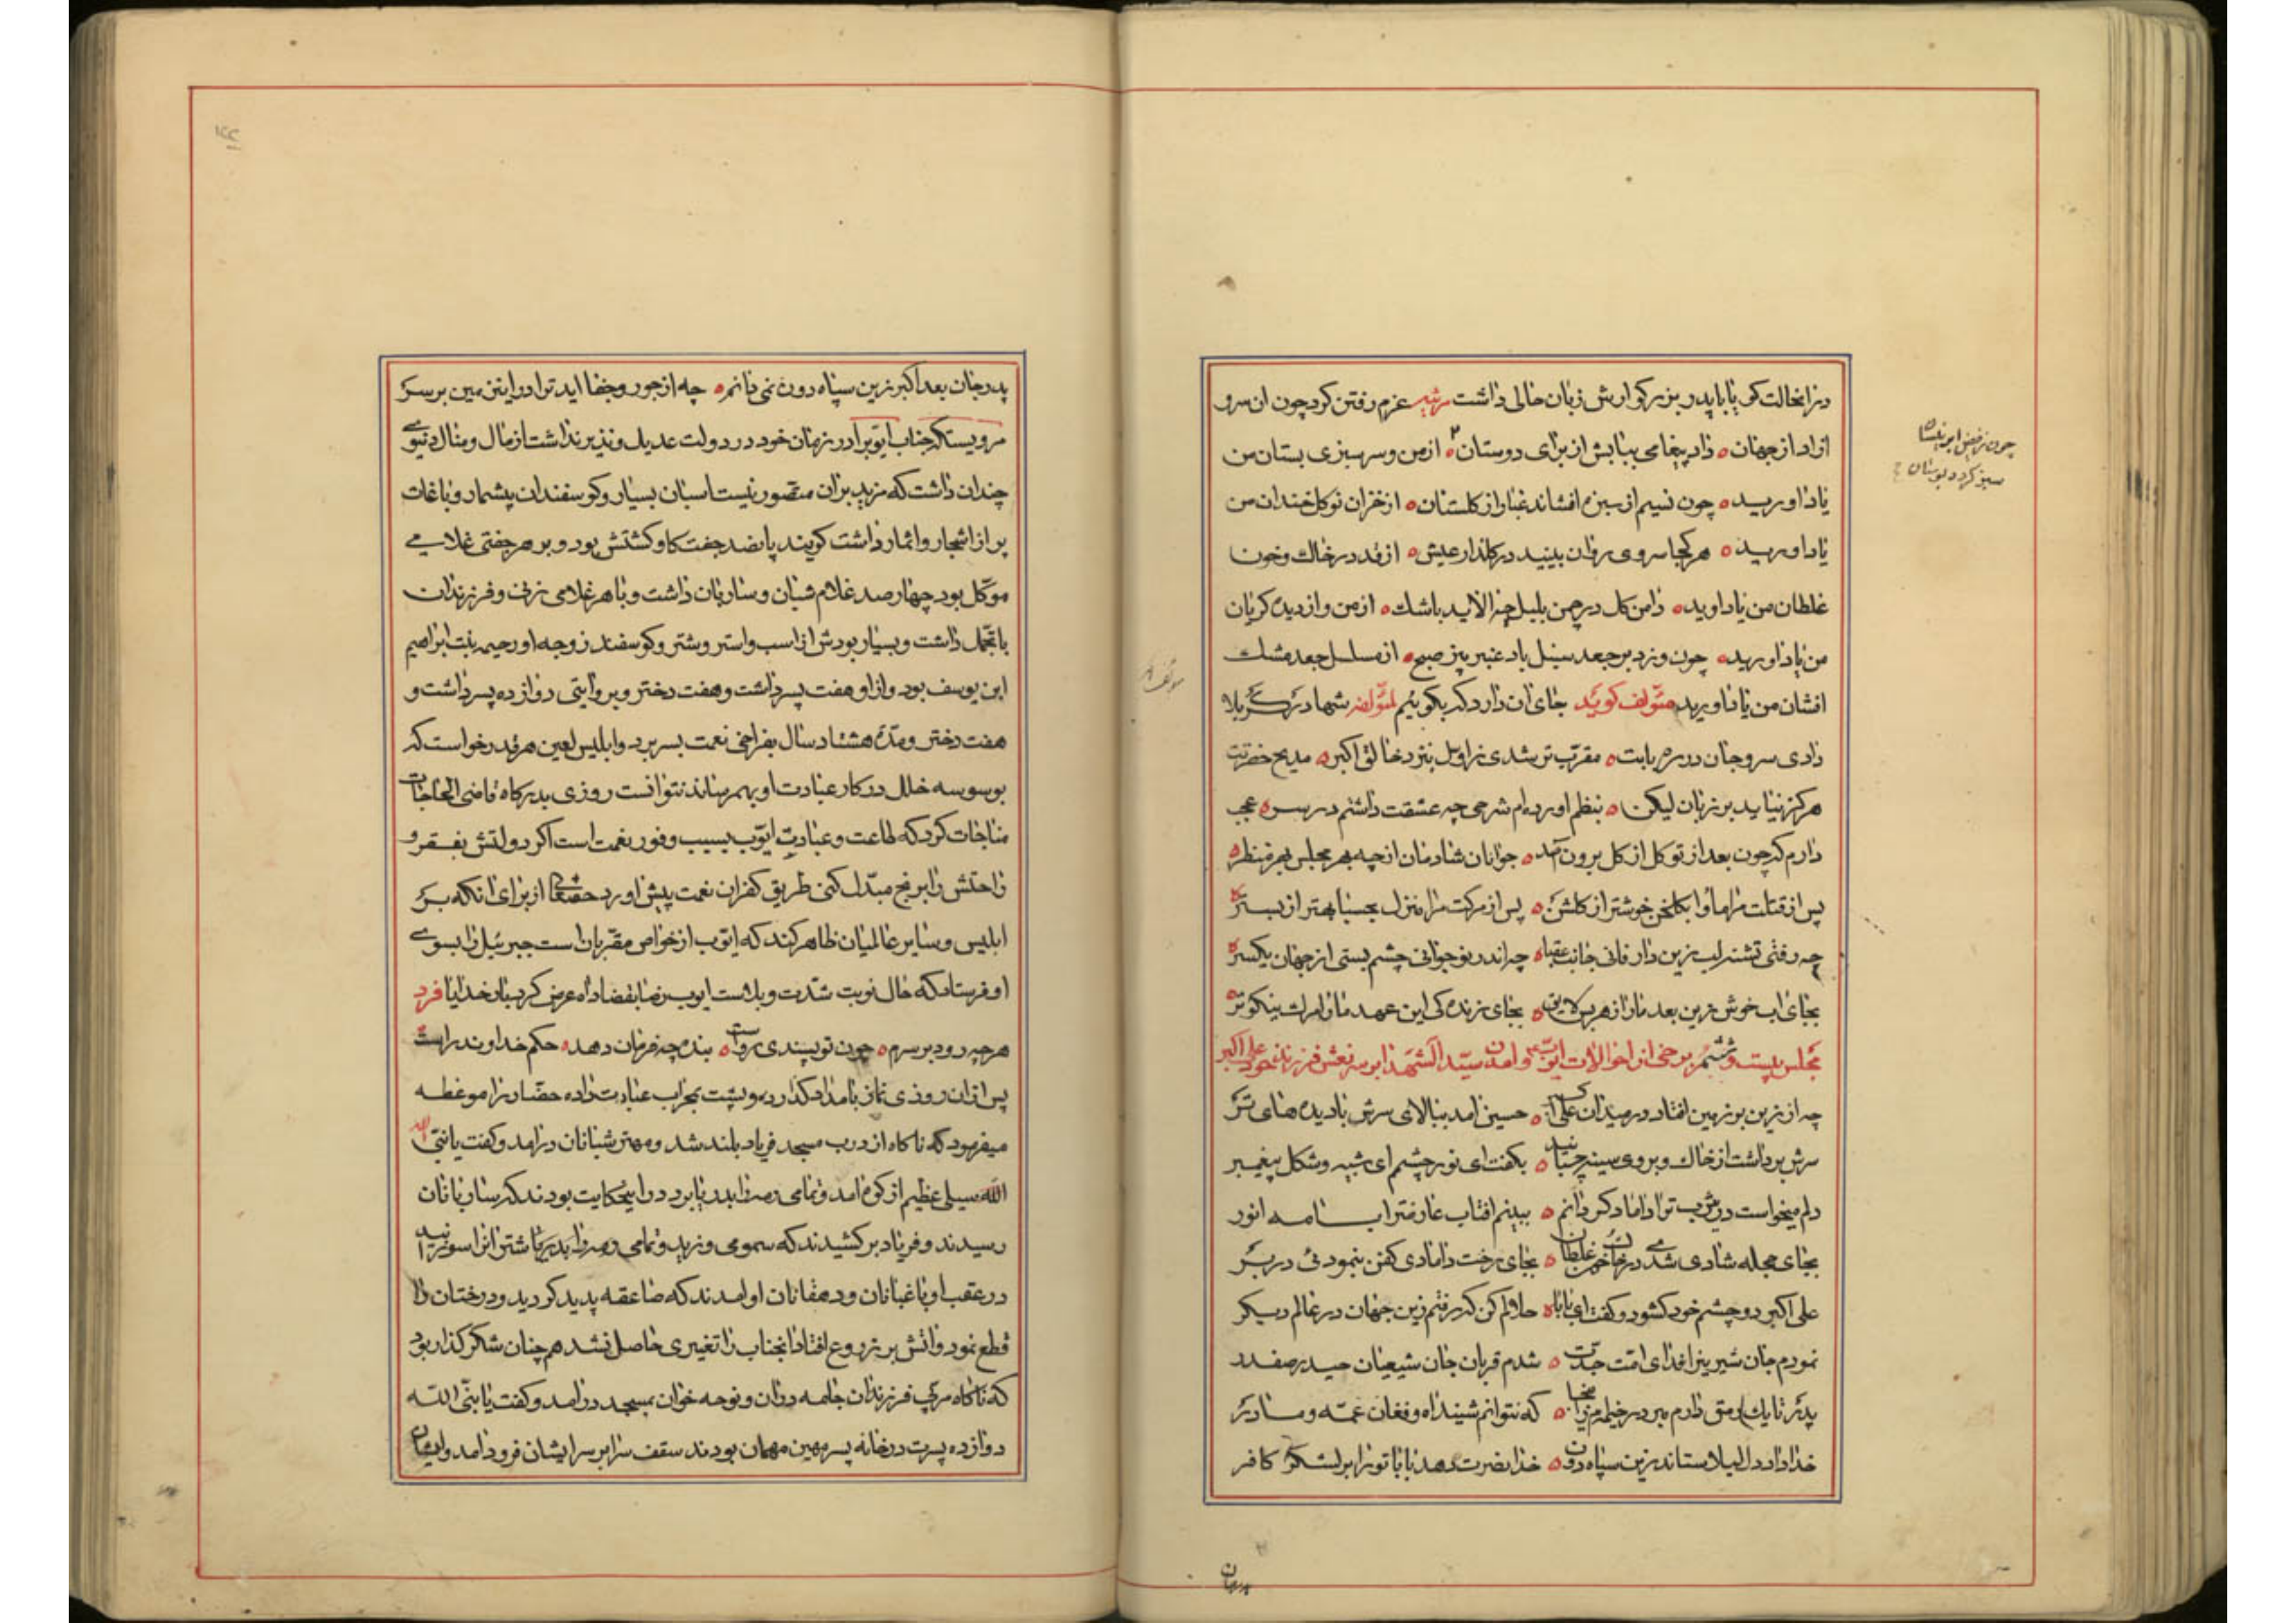 در انحالت کی یابا پدر بزرکوارش زبان حالی داشت مرثیه عزم رفتن کرد چون ان سرو
ازاد از جهان ٥ داد پیغامی ببابش از برای دوستان ٥ از من و سرسبزی بستان من
یاد اورید ٥ چون نسیم از سبزه افشاند غبار از کلستان ٥ از خزان نوکل خندان من
یاد اورید ٥ هر کجا سروی روان بینید در کلذار عیش ٥ از قد در خاک و خون
غلطان من یاد اوید ٥ دامن کل در چمن بلبل چه الاید باشک ٥ از من و از دیده کریان
من یاد اورید ٥ چون وزد بر جعد سنبل باد عنبر بیز صبح ٥ از مسلسل جعد مشک
افشان من یاد اورید مئولف کوید جای ان دارد که بکوئیم لمئولفه شها در کربلا
دادی سر و جان در ره بابت ٥ مقرب تر شدی ز اول بنزد خالق اکبر ٥ مدیح حضرتت
هرکز نیاید بر زبان لیکن ٥ بنظم اورده ام شرحی چه عشقت داشتم در سر ٥ عجب
دارم که چون بعد از تو کل از کل برون آمد ٥ جوانان شادمان از چه بهر مجلس بهر منظر ٥
پس از قتلت مرا ماوا بکلخن خوشتر از کلشن ٥ پس از مرکت مرا منزل بحسبا بهتر از بستر
چه رفتی تشنه لب زین دار فانی جانب عقبا ٥ چه اندر نوجوانی چشم بستی از جهان یکسر ٥
بجای اب خوش زین بعد مارا زهر بس لایق ٥ بجای زندکی این عهد مارا مرک نیکوتر ٥
مجلس بیست و ششم برخی از احوالات ایوب ع و امدن سید الشهدا بر سر نعش فرزند خود علی اکبر
چه از زین بر زمین افتاد در میدان علی اکبر ٥ حسین امد ببالای سرش با دیده های تر
سرش برداشت از خاک و بروی سینه چسبانید ٥ بکفت ای نور چشم ای شبیه و شکل پیغمبر
دلم میخواست در یثرب ترا داماد کردانم ٥ ببینم افتاب عارضترا با مه انور
بجای حجله شادی شدی در خاک و خون غلطان ٥ بجای رخت دامادی کفن بنمودئی در بر
علی اکبر دو چشم خود کشود و کفت ای بابا ٥ حلالم کن که رفتم زین جهان در عالم دیکر
نمودم جان شیرینرا فدای امت جدت ٥ شدم قربان جان شیعیان حیدر صفدر
پدر تا یک رمق دارم مبر در خیمه مرا ٥ که نتوانم شنید اه و فغان عمه و مادر
خدا داد دل لیلا ستاند زین سپاه دون ٥ خدا نصرت دهد بابا تو را بر لشکر کافر
چون ز فیض ابر نیسان
سبز کردد بوستان
پدر جان بعد اکبر زین سپاه دون نمی دانم ٥ چه از جور و جفا اید ترا در این زمین بر سر
مرویستکه جناب ایوب را در زمان خود در دولت عدیل و نذیر نداشت از مال و منال دنیوی
چندان داشت که مزید بران متصور نیست اسبان بسیار و کوسفندان بیشمار و باغات
پر از اشجار و اثمار داشت کویند پانصد جفت کاو کشتش بود و بر هر جفتی غلامی
موکل بود چهار صد غلام شبان و ساربان داشت و با هر غلامی زنی و فرزندان
با تجمل داشت و بسیار بودش از اسب و استر و شتر و کوسفند زوجه او رحیمه بنت ابراهیم
ابن یوسف بود و از او هفت پسر داشت و هفت دختر و بروایتی دوازده پسر داشت و
هفت دختر و مدة هشتاد سال بفراخی نعمت بسر برد و ابلیس لعین هر قدر خواست که
بوسوسه خلل در کار عبادت او بهم رساند نتوانست روزی بدرکاه قاضی الحاجات
مناجات کرد که طاعت و عبادت ایوب بسبب وفور نعمت است اکر دولتش بفقر و
راحتش را برنج مبدل کنی طریق کفران نعمت پیش اورد حقتعالی از برای انکه بر
ابلیس و سایر عالمیان ظاهر کند که ایوب از خواص مقربان است جبرئیل را بسوی
او فرستاد که حال نوبت شدت و بلاست ایوب رضا بقضا داه عرض کرد بار خدایا فرد
هر چه رود بر سرم ٥ چون تو پسندی رواست ٥ بنده چه فرمان دهد ٥ حکم خداوند راست
پس ازان روزی نماز بامداد کذارده و پشت بمحراب عبادت داده حضار را موعظه
میفرمود که ناکاه از درب مسجد فریاد بلند شد و مهتر شبانان درامد و کفت یا نبی الله
الله سیلی عظیم از کوه امد و تمامی رمه را بدریا برد در این حکایت بودند که ساربانان
رسیدند و فریاد بر کشیدند که سمومی وزید و تمامی شتران را سوزانید
در عقب او باغبانان و دهقانان او امدند که صاعقه پدید کردید و درختان را
قطع نمود و اتش بر زروع افتاد انجناب را تغییری حاصل نشد همچنان شکر کذار بود
که ناکاه مربی فرزندان جامه دران و نوحه خوان بمسجد درامد و کفت یا نبی الله
دوازده پسرت در خانه پسر مهین مهمان بودند سقف سرا بر سر ایشان فرود امد و ایشان